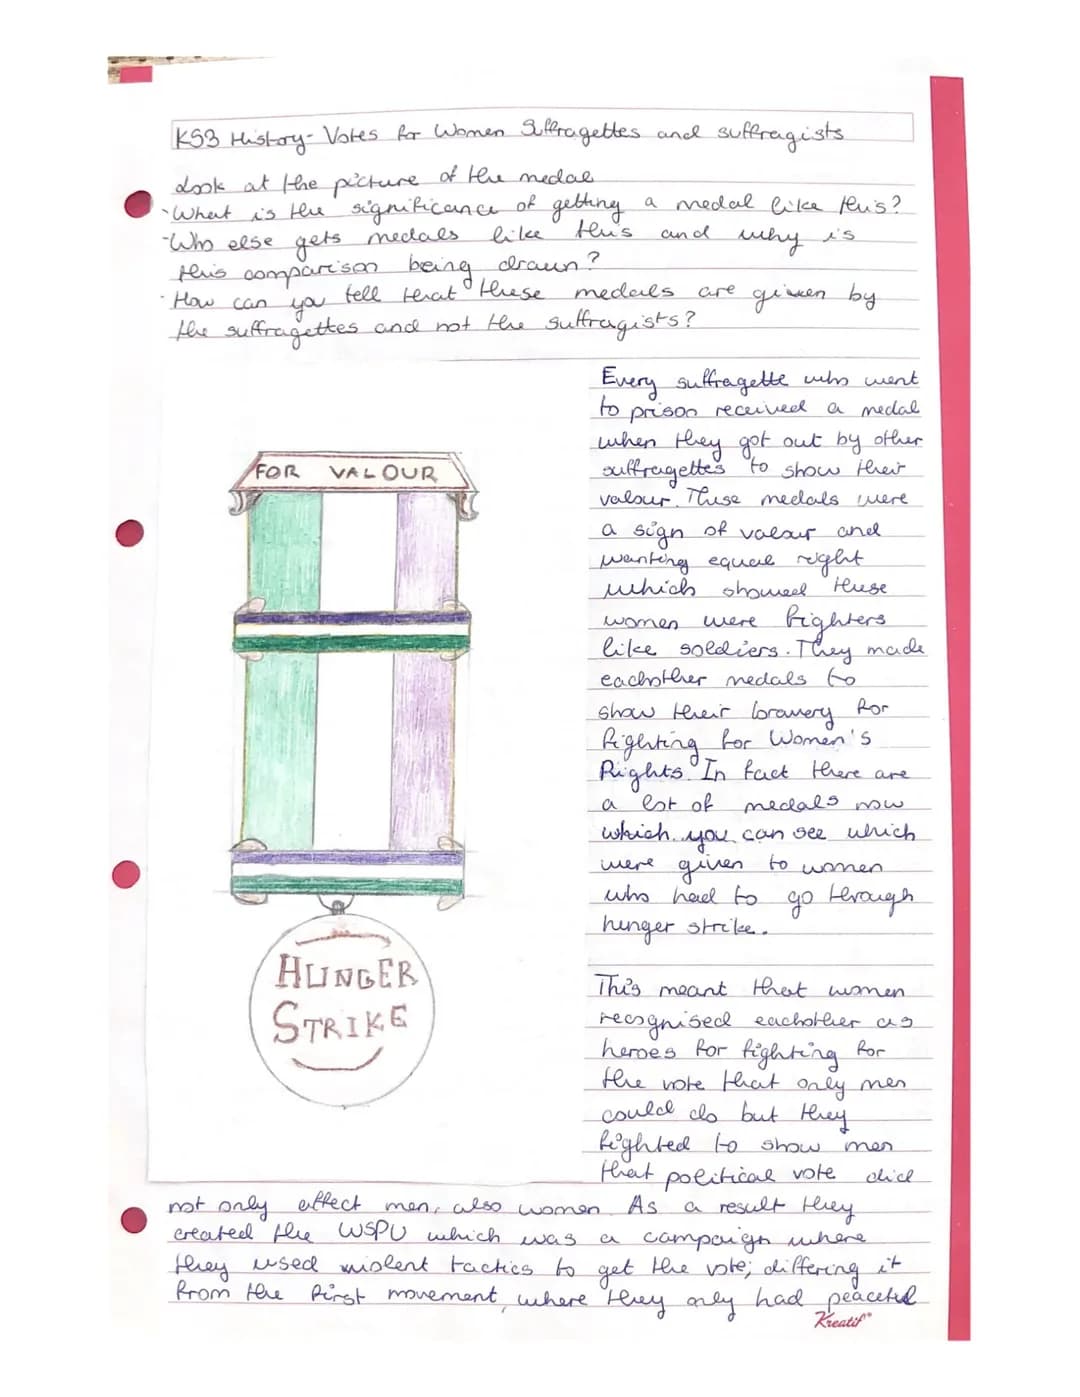 KS3 History- Votes for Women Suffragettes and suffragists
Look at the picture of the medal
·What is the significance of getting a medal like this?
-Who else gets medals like this and why is
this comparison being drawn?
·How can you tell that these medals are given by
the suffragettes and not the suffragists?
FOR VALOUR
HUNGER
STRIKE
Every suffragette who went
to prison received a medal
when they got out by other
suffragettes to show their
valour. These medals were
a sign of valour and
wanting equal right
which showed these
women were fighters
like soldiers. They made
eachother medals to
show their bravery for
fighting for Women's
Rights. In fact there are
a lot of medals now
which you can see which
were given to women
who had to go through
hunger strike.
This meant that women
recognised eachother as
heroes for fighting for
the vote that only men
could do but they
fighted to show men
that political vote did
not only effect men, also women. As a result they
created the WSPU which was a campaign where
they used violent tactics to get the vote; differing it
from the first movement, where they only had peaceful
Kreatif